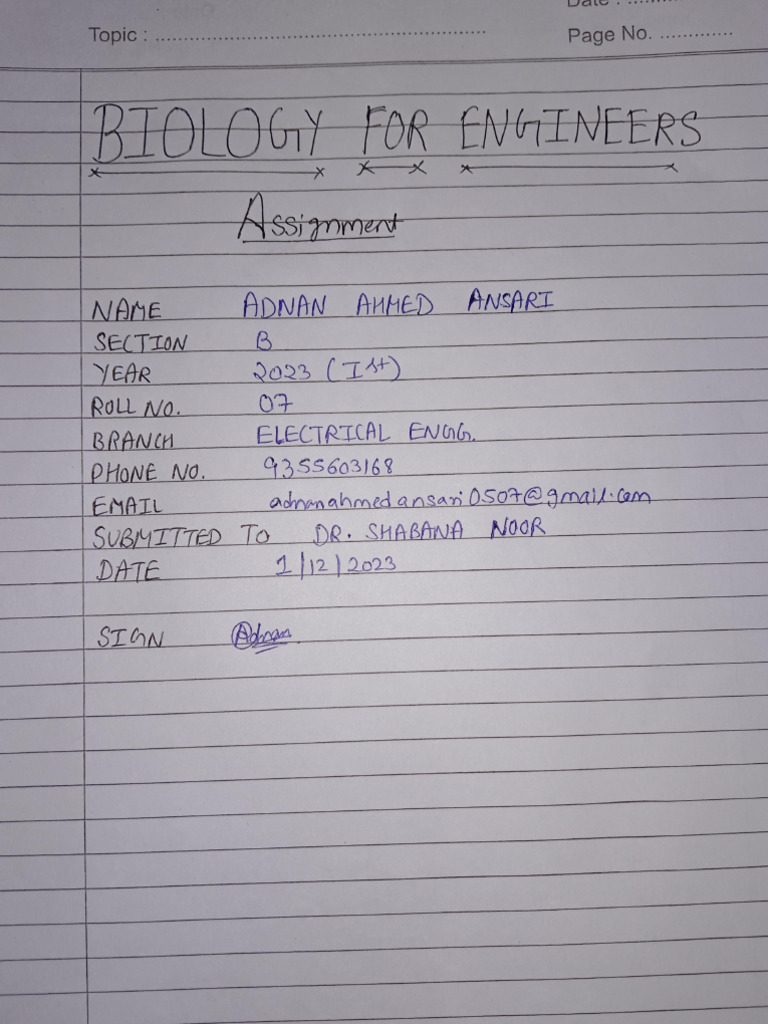 Date : ........
Topic : ............................................................
Page No. .............
BIOLOGY FOR ENGINEERS
Assignment
NAME ADNAN AHMED ANSARI
SECTION B
YEAR 2023 (Ist)
ROLL NO. 07
BRANCH ELECTRICAL ENGG.
PHONE NO. 9355603168
EMAIL adnanahmedansari0507@gmail.com
SUBMITTED TO DR. SHABANA NOOR
DATE 1/12/2023
SIGN Adnan